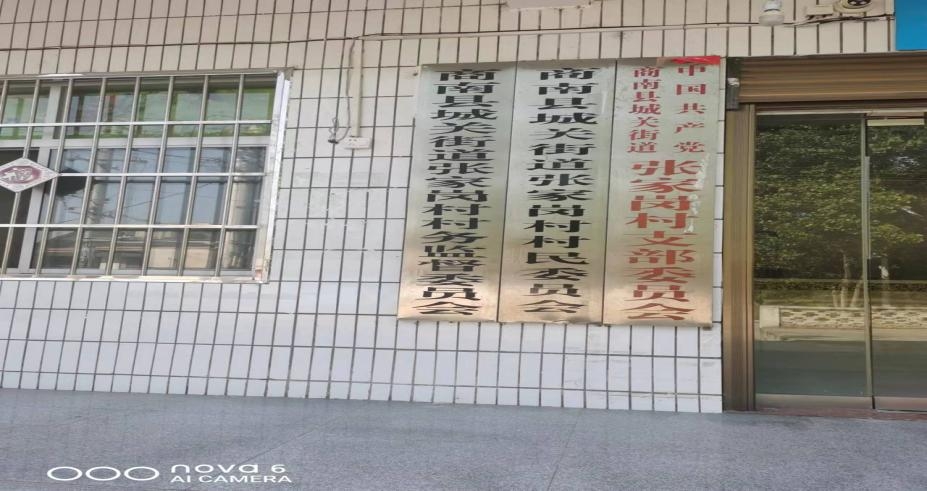 中国共产党
商南县城关街道
张家岗村支部委员会
商南县城关街道张家岗村村民委员会
商南县城关街道张家岗村村务监督委员会
nova 6
AI CAMERA